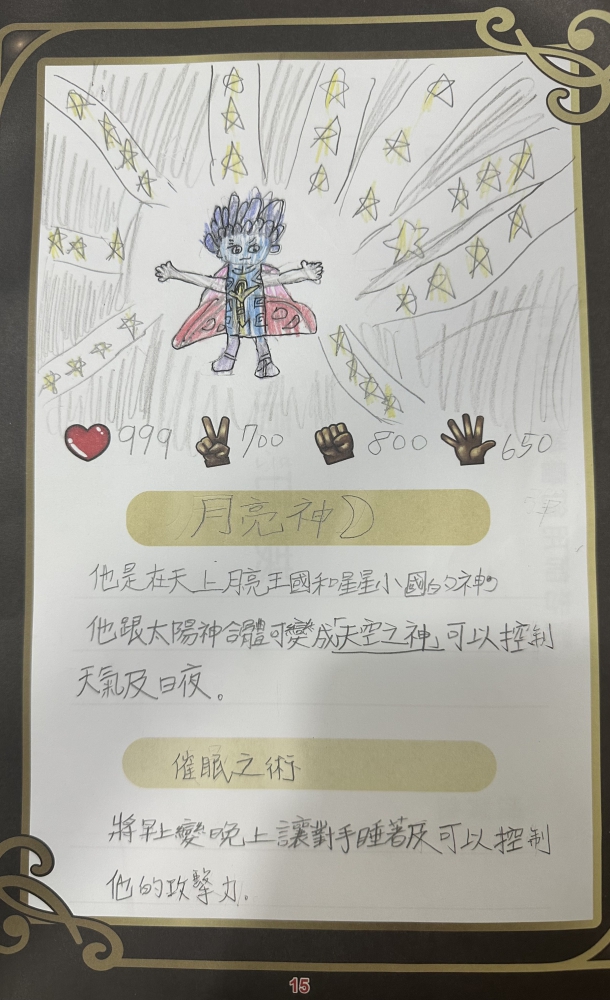 999 700 800 650
月亮神
他是在天上月亮王國和星星小國的神。
他跟太陽神合體可變成「天空之神」可以控制
天氣及日夜。
催眠之術
將早上變晚上讓對手睡著及可以控制
他的攻擊力。
15